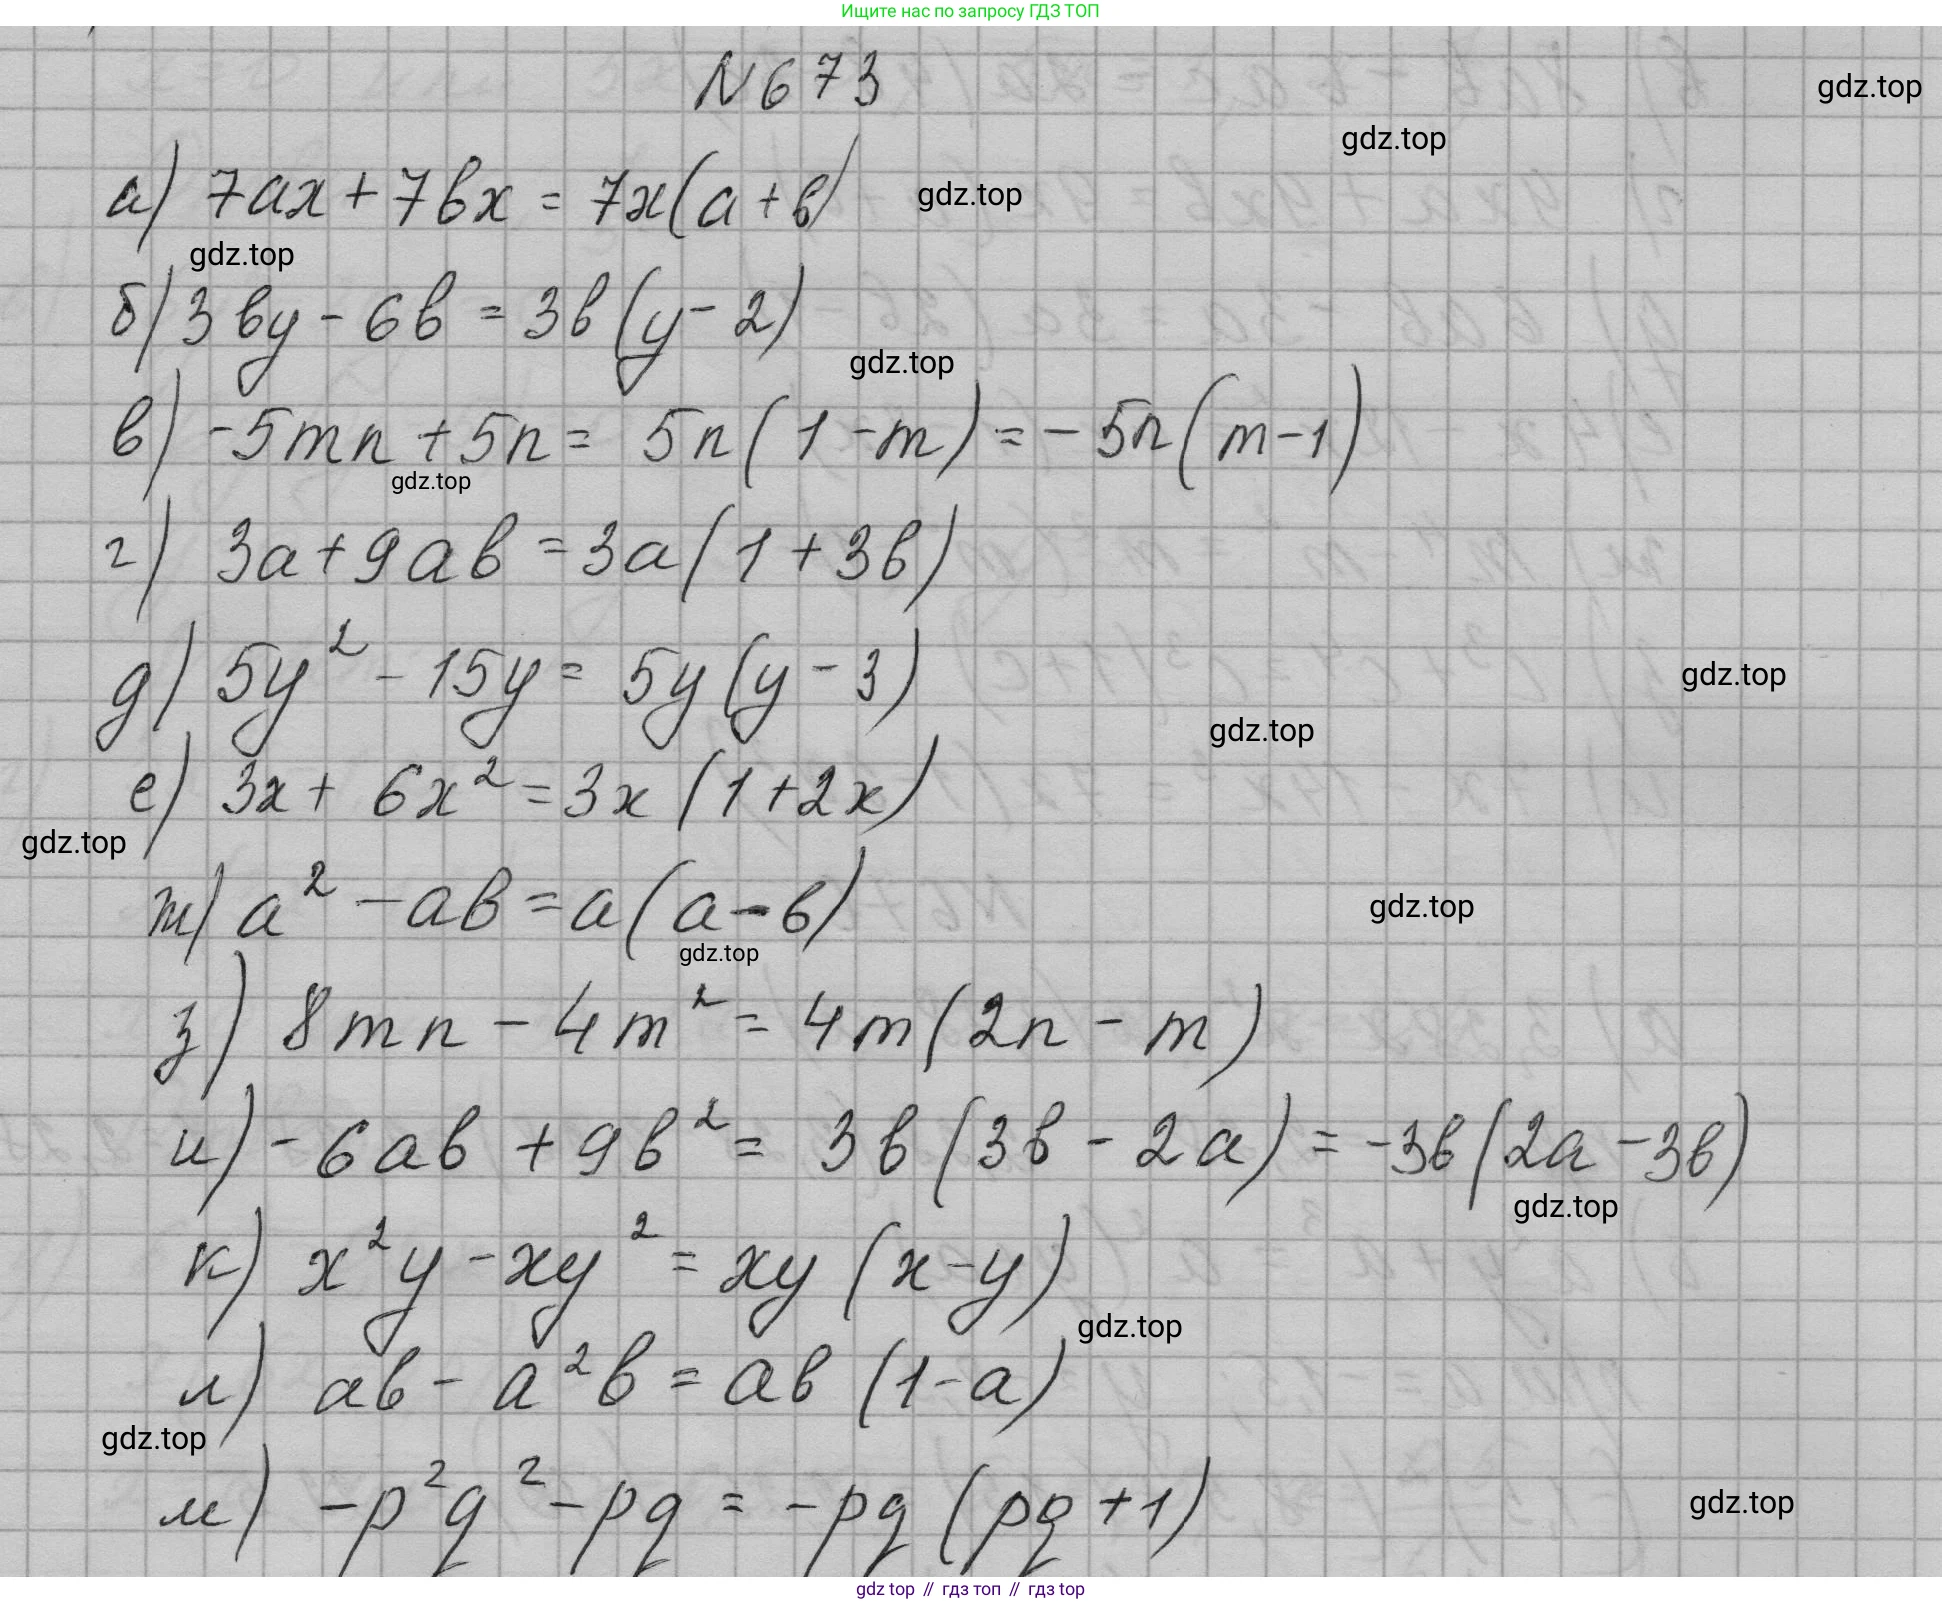 Ищите нас по запросу ГДЗ ТОП
N 673
gdz.top
gdz.top
а) 7ax + 7bx = 7x(a + b)
gdz.top
gdz.top
б) 3by - 6b = 3b(y - 2)
gdz.top
в) -5mn + 5n = 5n(1 - m) = -5n(m - 1)
gdz.top
г) 3a + 9ab = 3a(1 + 3b)
д) 5y² - 15y = 5y(y - 3)
gdz.top
gdz.top
е) 3x + 6x² = 3x(1 + 2x)
gdz.top
ж) a² - ab = a(a - b)
gdz.top
gdz.top
з) 8mn - 4m² = 4m(2n - m)
и) -6ab + 9b² = 3b(3b - 2a) = -3b(2a - 3b)
gdz.top
к) x²y - xy² = xy(x - y)
gdz.top
л) ab - a²b = ab(1 - a)
gdz.top
м) -p²q² - pq = -pq(pq + 1)
gdz.top
gdz top // гдз топ // гдз top